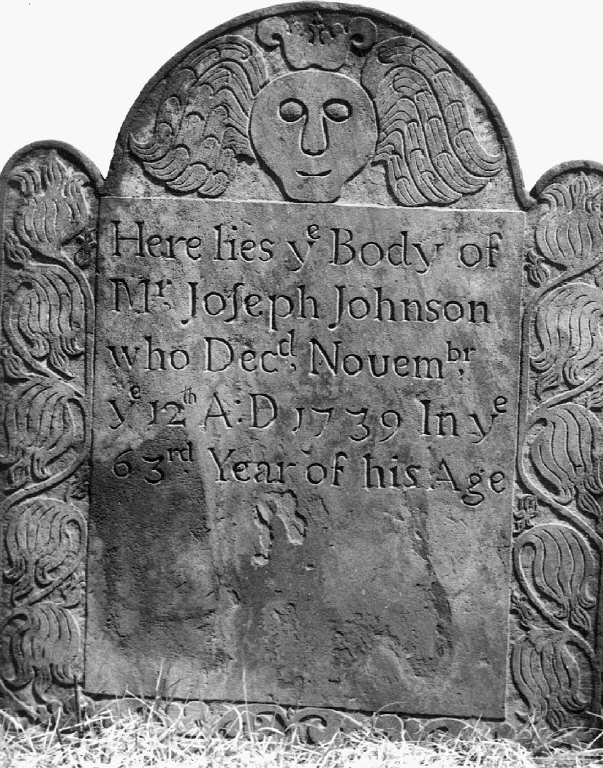 Here lies yᵉ Body of
Mʳ Joſeph Johnson
who Decᵗᵈ Nouemᵇʳ
yᵉ 12ᵗʰ A:D 1739 In yᵉ
63ʳᵈ Year of his Age